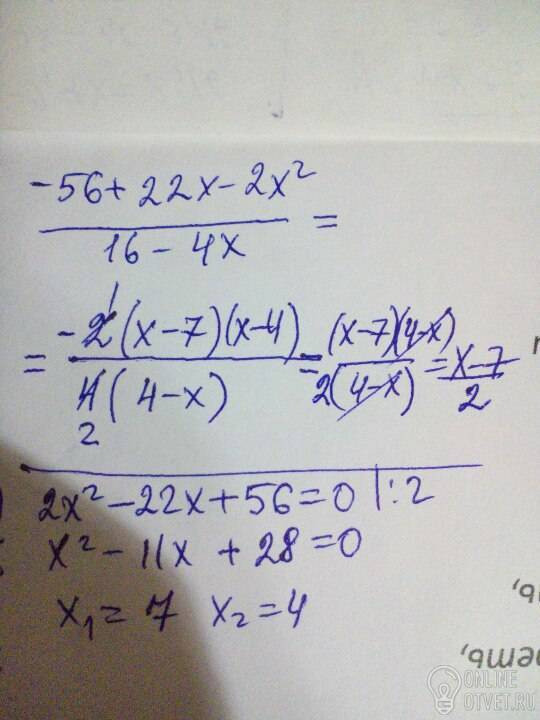 -56+22x-2x²
16-4x
=
= -2(x-7)(x-4) / 4(4-x) = (x-7)(4-x) / 2(4-x) = x-7 / 2
1
2
2x²-22x+56=0 |:2
x²-11x+28=0
x₁=7 x₂=4
ONLINE
OTVET.RU